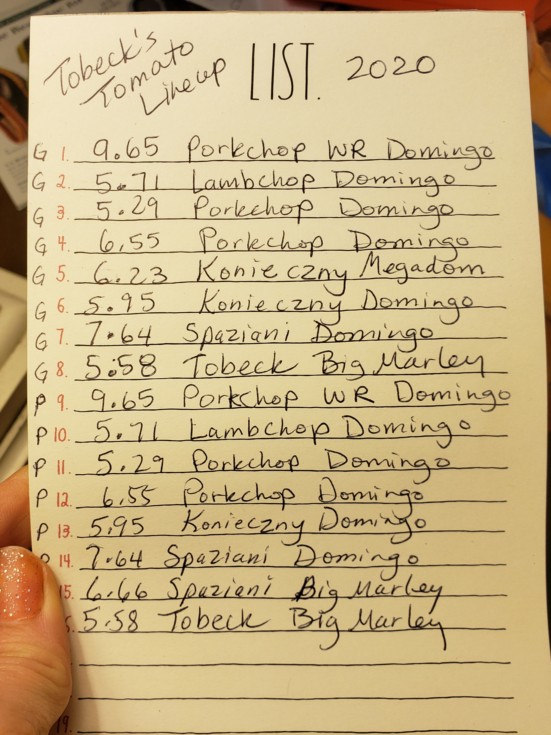 Tobeck's
Tomato
Lineup
LIST. 2020
G 1. 9.65 Porkchop WR Domingo
G 2. 5.71 Lambchop Domingo
G 3. 5.29 Porkchop Domingo
G 4. 6.55 Porkchop Domingo
G 5. 6.23 Konieczny Megadom
G 6. 5.95 Konieczny Domingo
G 7. 7.64 Spaziani Domingo
G 8. 5.58 Tobeck Big Marley
P 9. 9.65 Porkchop WR Domingo
P 10. 5.71 Lambchop Domingo
P 11. 5.29 Porkchop Domingo
P 12. 6.55 Porkchop Domingo
P 13. 5.95 Konieczny Domingo
P 14. 7.64 Spaziani Domingo
15. 6.66 Spaziani Big Marley
5.58 Tobeck Big Marley
19.